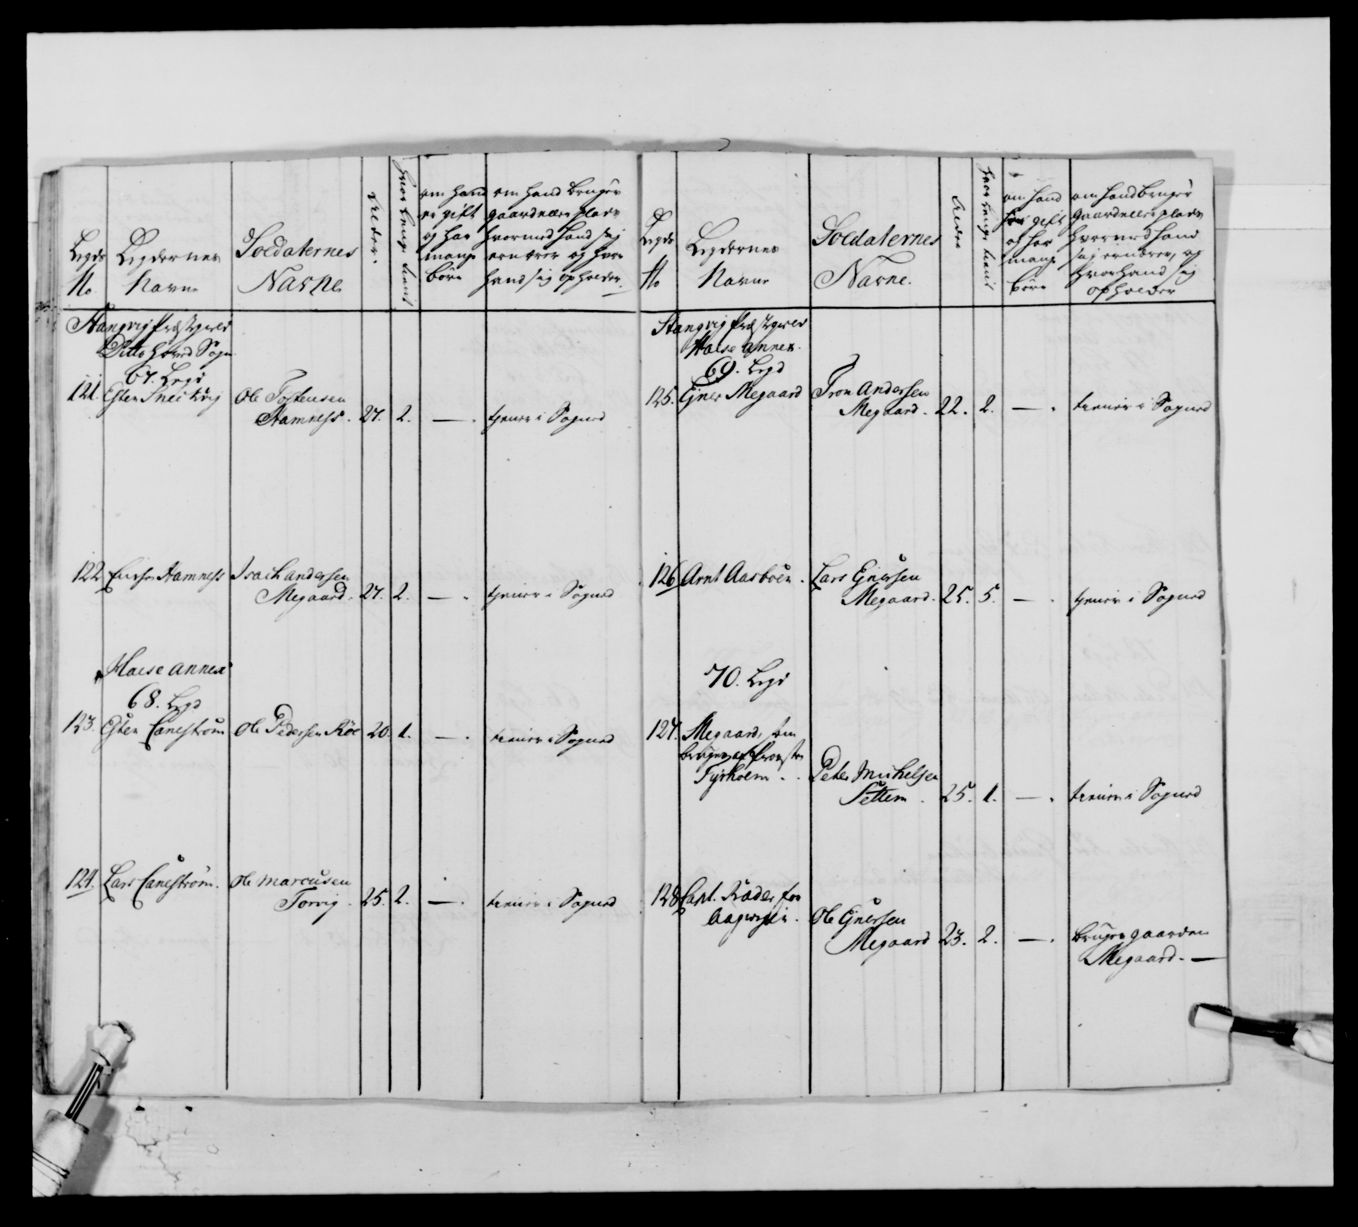 Legds
No
Legdernes
Navne
Soldaternes
Navne
Alder.
hvor lenge tient
om hand
er gift
og har
mange
børn
om hand bruger
gaard eller plads
hvormed hand sig
ernærer og hvor
hand sig opholder.
Stangvig Præstegield
Ditto Hoved Sogn
67. Legd
121. Esten Sneeking
Ole Tostensen
Hamness. 27. 2. — . tiener i Sognet
122 Hamness
Isach Andersen
Megaard. 27. 2. — . tiener i Sognet
Halse Annex
68. Legd
123. Esten Canestrøm Ole Pedersen Röe 20. 1. — . tiener i Sognet
124. Lars Canestrøm. Ole Marcusen
Torvig. 25. 2. — . tiener i Sognet
Legds
No
Legdernes
Navne
Soldaternes
Navne.
Alder
hvor lenge tient
om hand
er gift
og har
mange
børn
om hand bruger
gaard eller plads
hvormed hand
sig ernærer, og
hvor hand sig
opholder
Stangvig Præstegield
Halse Annex.
69. Legd
125. Ejner Megaard Tron Andersen
Megaard. 22. 2. — . tiener i Sognet
126 Arnt Aasbøen. Lars Ejnersen
Megaard. 25. 5. — . tiener i Sognet
70. Legd
127. Megaard, som
bruges af Provsten
Tyrholm. . Peter Michelsen
Settem. 25. 1. — . tiener i Sognet
128 Capt. for
Ole Ejnersen
Megaard 23. 2. — . bruger gaarden
Megaard. —